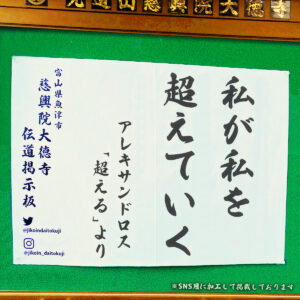 元道山慈興院大徳寺
私が私を
超えていく
アレキサンドロス
「超える」より
富山県魚津市
慈興院大德寺
伝道掲示板
@jikoindaitokuji
@jikoin_daitokuji
※SNS用に加工して掲載しております